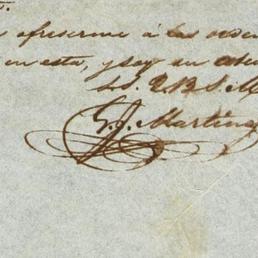 ofrecerme á las orden
en esta, y soy su aten
S. S. Q. B. S. M.
G. J. Martinez